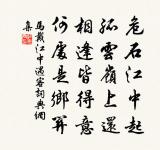 危石江中起
孤雲嶺上還
相逢皆得意
何處是鄉關
馬戴江中遇客詞典網
集